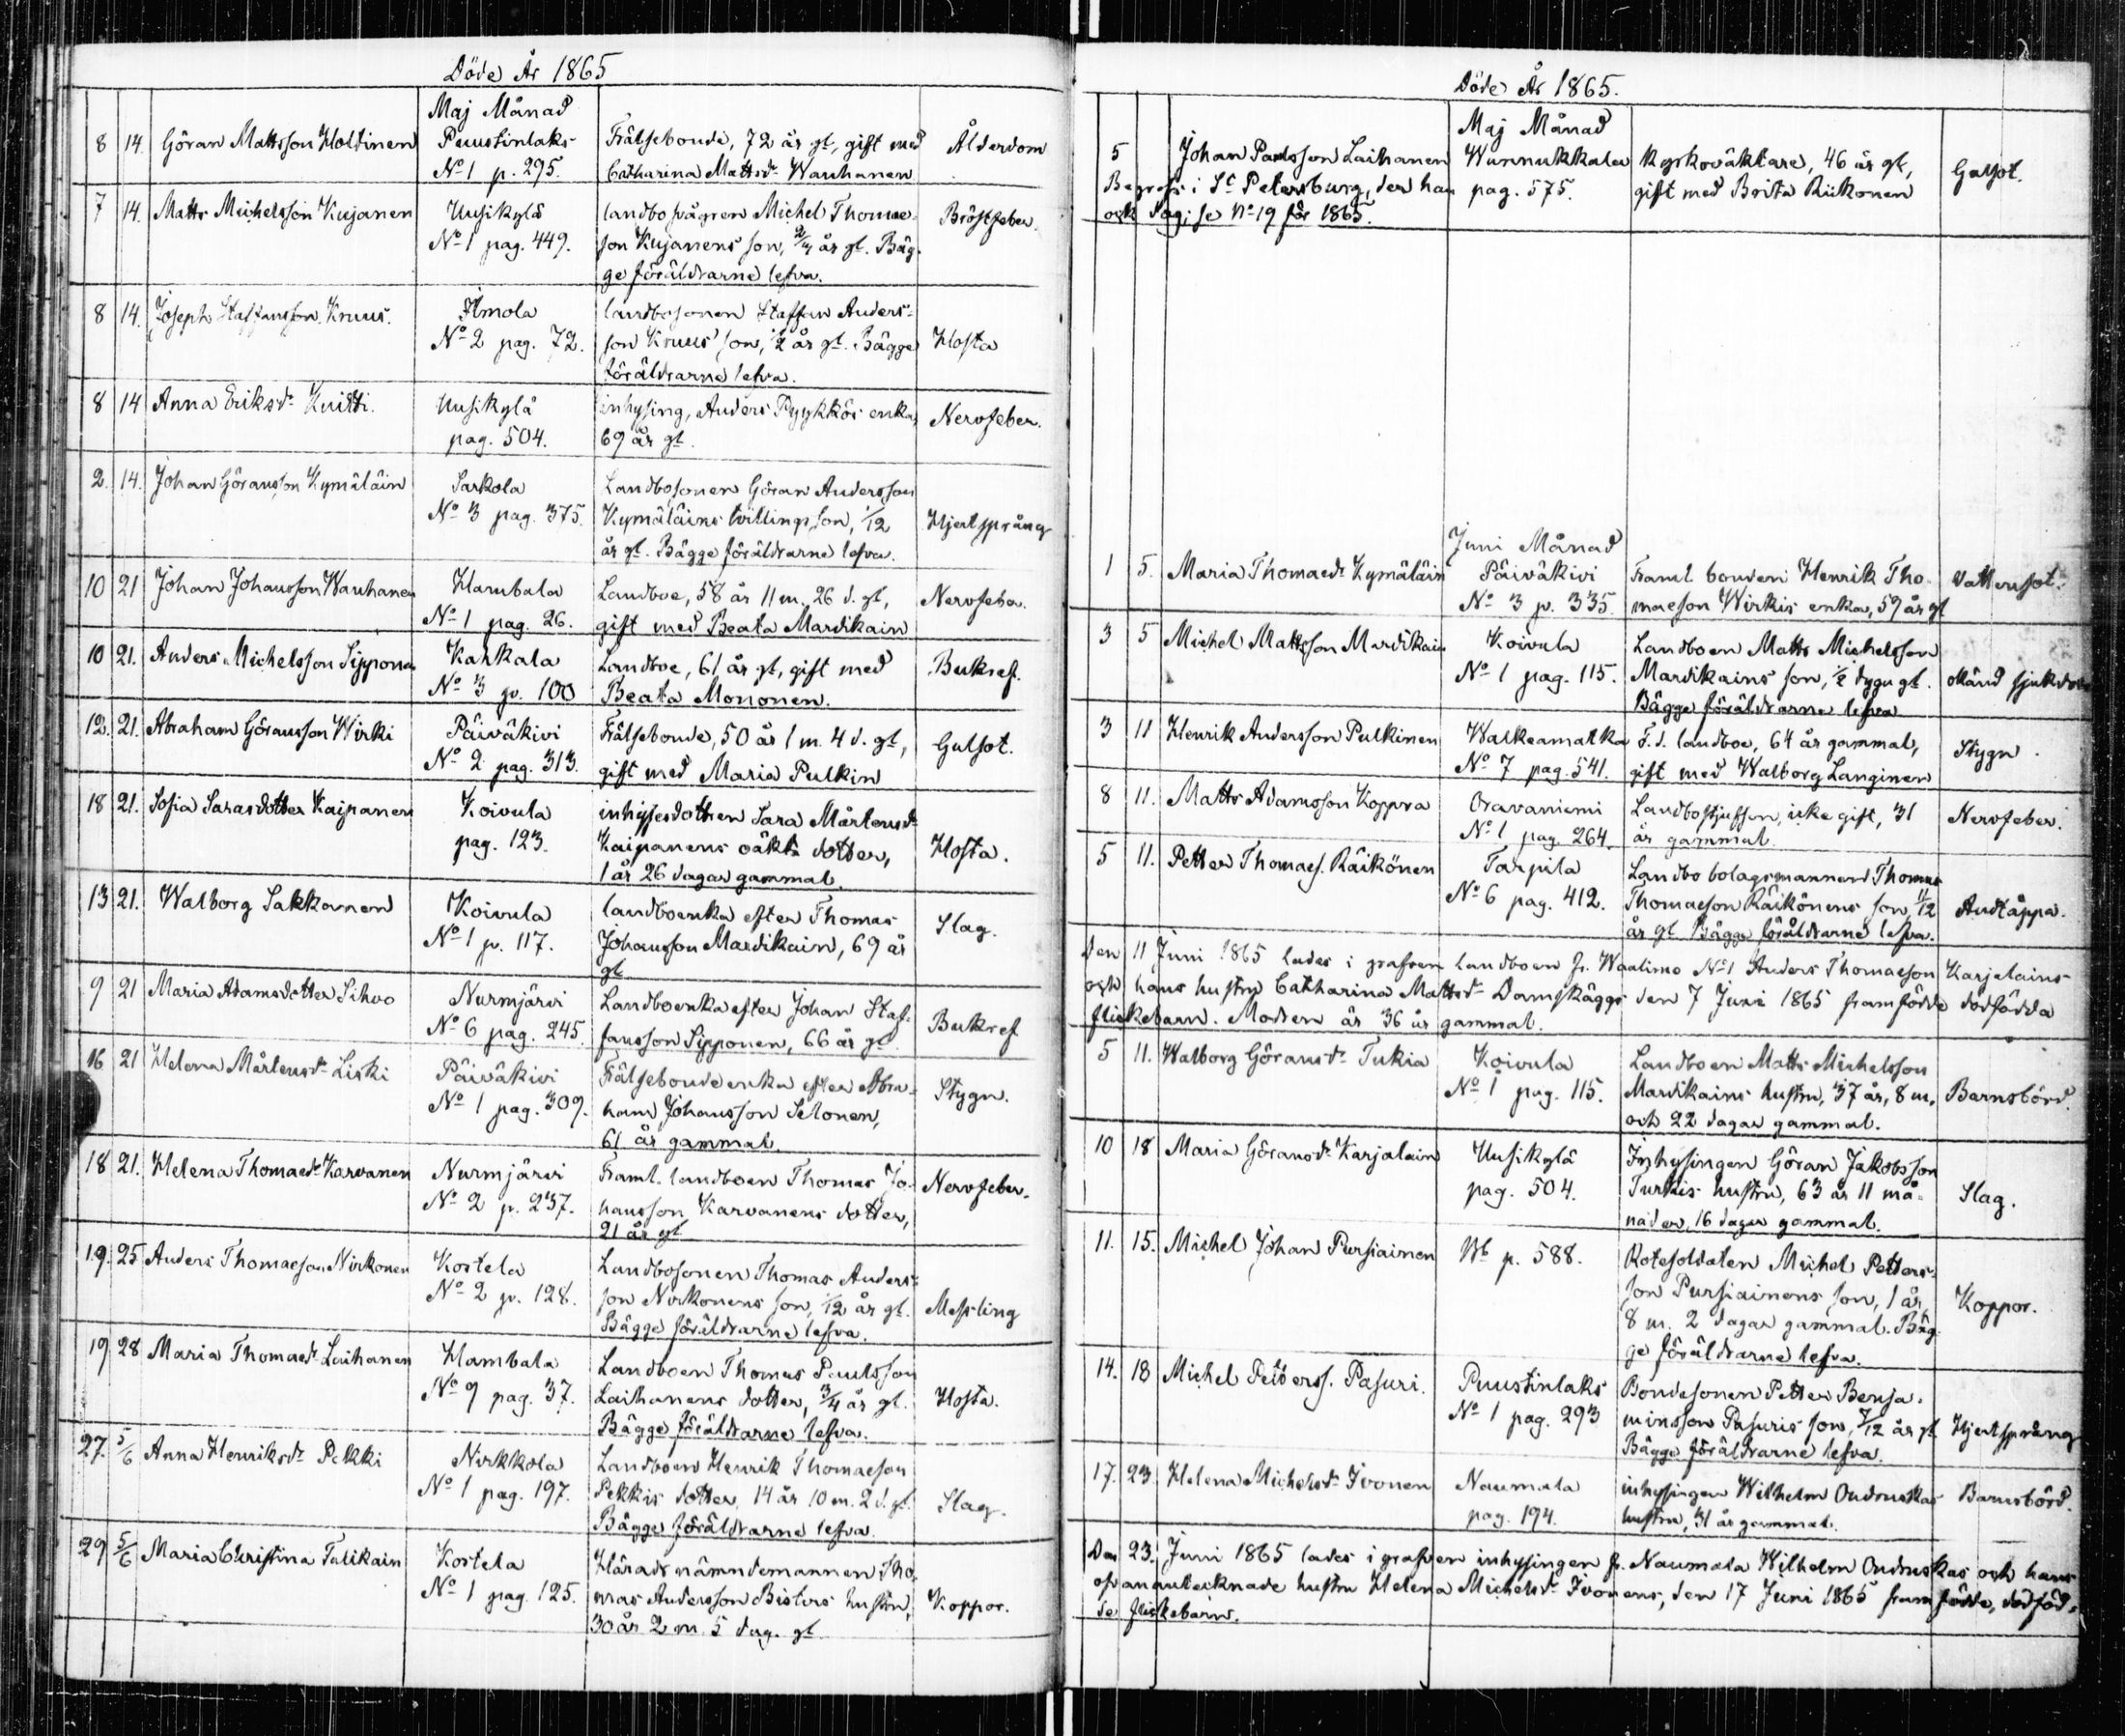 Döde År 1865
Maj Månad
8 14. Göran Mattsson Holttinen Puustinlaks Frälsebonde, 72 år gl, gift med Ålderdom
No 1 p. 295. Catharina Mattsdr Wauhanen
7 14. Matts Michelsson Kujanen Uusikylä landbosvågren Michel Thomae- Bröstfeber.
No 1 pag. 449. son Kujanens son, 2/4 år gl. Bäg-
ge föräldrarne lefva.
8 14. Joseph Staffansson Kruus. Ilmola landbosonen Staffan Anders-
No 2 pag. 72. son Kruus' son, 1/2 år gl. Bägge Hosta
föräldrarne lefva.
8 14 Anna Eriksdr Kuitti. Uusikylä inhysing, Anders Pyykkös enka, Nervfeber.
pag. 504. 69 år gl.
2. 14. Johan Göransson Kymäläin Sarkola Landbosonen Göran Andersson
No 3 pag. 375. Kymäläins tvillingsson, 1/12 Hjertsprång
år gl. Bägge föräldrarne lefva.
10 21 Johan Johansson Wauhanen Hambala Landboe, 58 år 11 m. 26 d. gl, Nervfeber.
No 1 pag. 26. gift med Beata Mardikain
10 21. Anders Michelsson Sipponen Karkala Landboe, 61 år gl, gift med Bukref.
No 3 p. 100 Beata Mononen.
12. 21. Abraham Göransson Wirki Päiväkivi Frälsebonde, 50 år 1 m. 4 d. gl, Gulsot.
No 2 pag. 313. gift med Maria Pulkin
18 21. Sofia Sarasdotter Kaipanen Koivula inhysesdottren Sara Mårtensdr
pag. 123. Kaipanens oäkta dotter, Hosta.
1 år 26 dagar gammal.
13 21. Walborg Sakkonen Koivula landboenka efter Thomas Slag.
No 1 p. 117. Johansson Mardikain, 69 år
gl
9 21 Maria Adamsdotter Sihvo Nurmjärvi Landboenka efter Johan Staf- Bukref
No 6 pag. 245. fansson Sipponen, 66 år gl
16 21 Helena Mårtensdr Liski Päiväkivi Frälsebondeenka efter Abra- Stygn.
No 1 pag. 309. ham Johansson Selonen,
61 år gammal.
18 21. Helena Thomaedr Karvanen Nurmjärvi Framl. landboen Thomas Jo- Nervfeber.
No 2 p. 237. hansson Karvanens dotter,
21 år gl
19. 25 Anders Thomaeson Nirkonen Kostela Landbosonen Thomas Anders-
No 2 p. 128. son Nirkonens son, 1/12 år gl. Messling
Bägge föräldrarne lefva.
19 28 Maria Thomaedr Laihanen Hambala Landboen Thomas Paulsson
No 9 pag. 37. Laihanens dotter, 3/4 år gl. Hosta.
Bägge föräldrarne lefva.
27. 5/6 Anna Henriksdr Pekki Nirkkola Landboen Henrik Thomaeson
No 1 pag. 197. Pekkis dotter, 14 år 10 m. 2 d. gl. Slag.
Bägge föräldrarne lefva.
29 5/6 Maria Christina Talikain Kostela Häradsnämndemannen Tho-
No 1 pag. 125. mas Andersson Bisters hustru, Koppor.
30 år 2 m. 5 dag. gl
Döde År 1865.
Maj Månad
5 Johan Paulsson Laihanen Wunnukkala Kyrkoväktare, 46 år gl, Gulsot.
Begrofs i St Petersburg, der han pag. 575. gift med Brita Riikonen
ock dog; se No 19 för 1865.
Juni Månad
1 5. Maria Thomaedr Kymäläin Päiväkivi Framl. bonden Henrik Tho- Vattensot.
No 3 p. 335. maeson Wirkis enka, 59 år gl
3 5 Michel Mattsson Mardikain Koivula Landboen Matts Michelsson
No 1 pag. 115. Mardikains son, 1/2 dygn gl. okänd sjukdom
Bägge föräldrarne lefva
3 11 Henrik Andersson Pulkinen Walkeamatka F. d. landboe, 64 år gammal, Stygn.
No 7 pag. 541. gift med Walborg Langinen
8 11. Matts Adamsson Koppra Oravaniemi Landbostjufson, icke gift, 31 Nervfeber.
No 1 pag. 264. år gammal.
5 11. Petter Thomaes. Räikönen Tarpila Landbobolagsmannen Thomas
No 6 pag. 412. Thomaeson Räikönens son, 11/12 Andtäppa.
år gl. Bägge föräldrarne lefva.
Den 11 Juni 1865 lades i grafven Landboen fr. Waalimo No 1 Anders Thomaeson Karjalains
och hans hustru Catharina Mattsdr Damskäggs den 7 Juni 1865 framfödde dödfödda
flickebarn. Modren är 36 år gammal.
5 11. Walborg Göransdr Tukia Koivula Landboen Matts Michelsson
No 1 pag. 115. Mardikains hustru, 37 år, 8 m. Barnsbörd.
och 22 dagar gammal.
10 18 Maria Göransdr Karjalain Uusikylä Inhysingen Göran Jakobsson
pag. 504. Turkis hustru, 63 år 11 må- Slag.
nader, 16 dagar gammal.
11. 15. Michel Johan Pursiainen p. 588. Rotesoldaten Michel Petters-
son Pursiainens son, 1 år, Koppor.
8 m. 2 dagar gammal. Bäg-
ge föräldrarne lefva.
14. 18 Michel Petterss. Pasuri. Puustinlaks Bondesonen Petter Benja-
No 1 pag. 293 minsson Pasuris son, 7/12 år gl Hjertsprång
Bägge föräldrarne lefva.
17. 23 Helena Michelsdr Ivonen Naumala inhysingen Wilhelm Oudruskas Barnsbörd.
pag. 194. hustru, 31 år gammal.
Den 23. Juni 1865 lades i grafven inhysingen fr. Naumala Wilhelm Oudruskas och hans
ofvanantecknade hustru Helena Michelsdr Ivonens, den 17 Juni 1865 framfödde, dödföd-
de flickebarn.